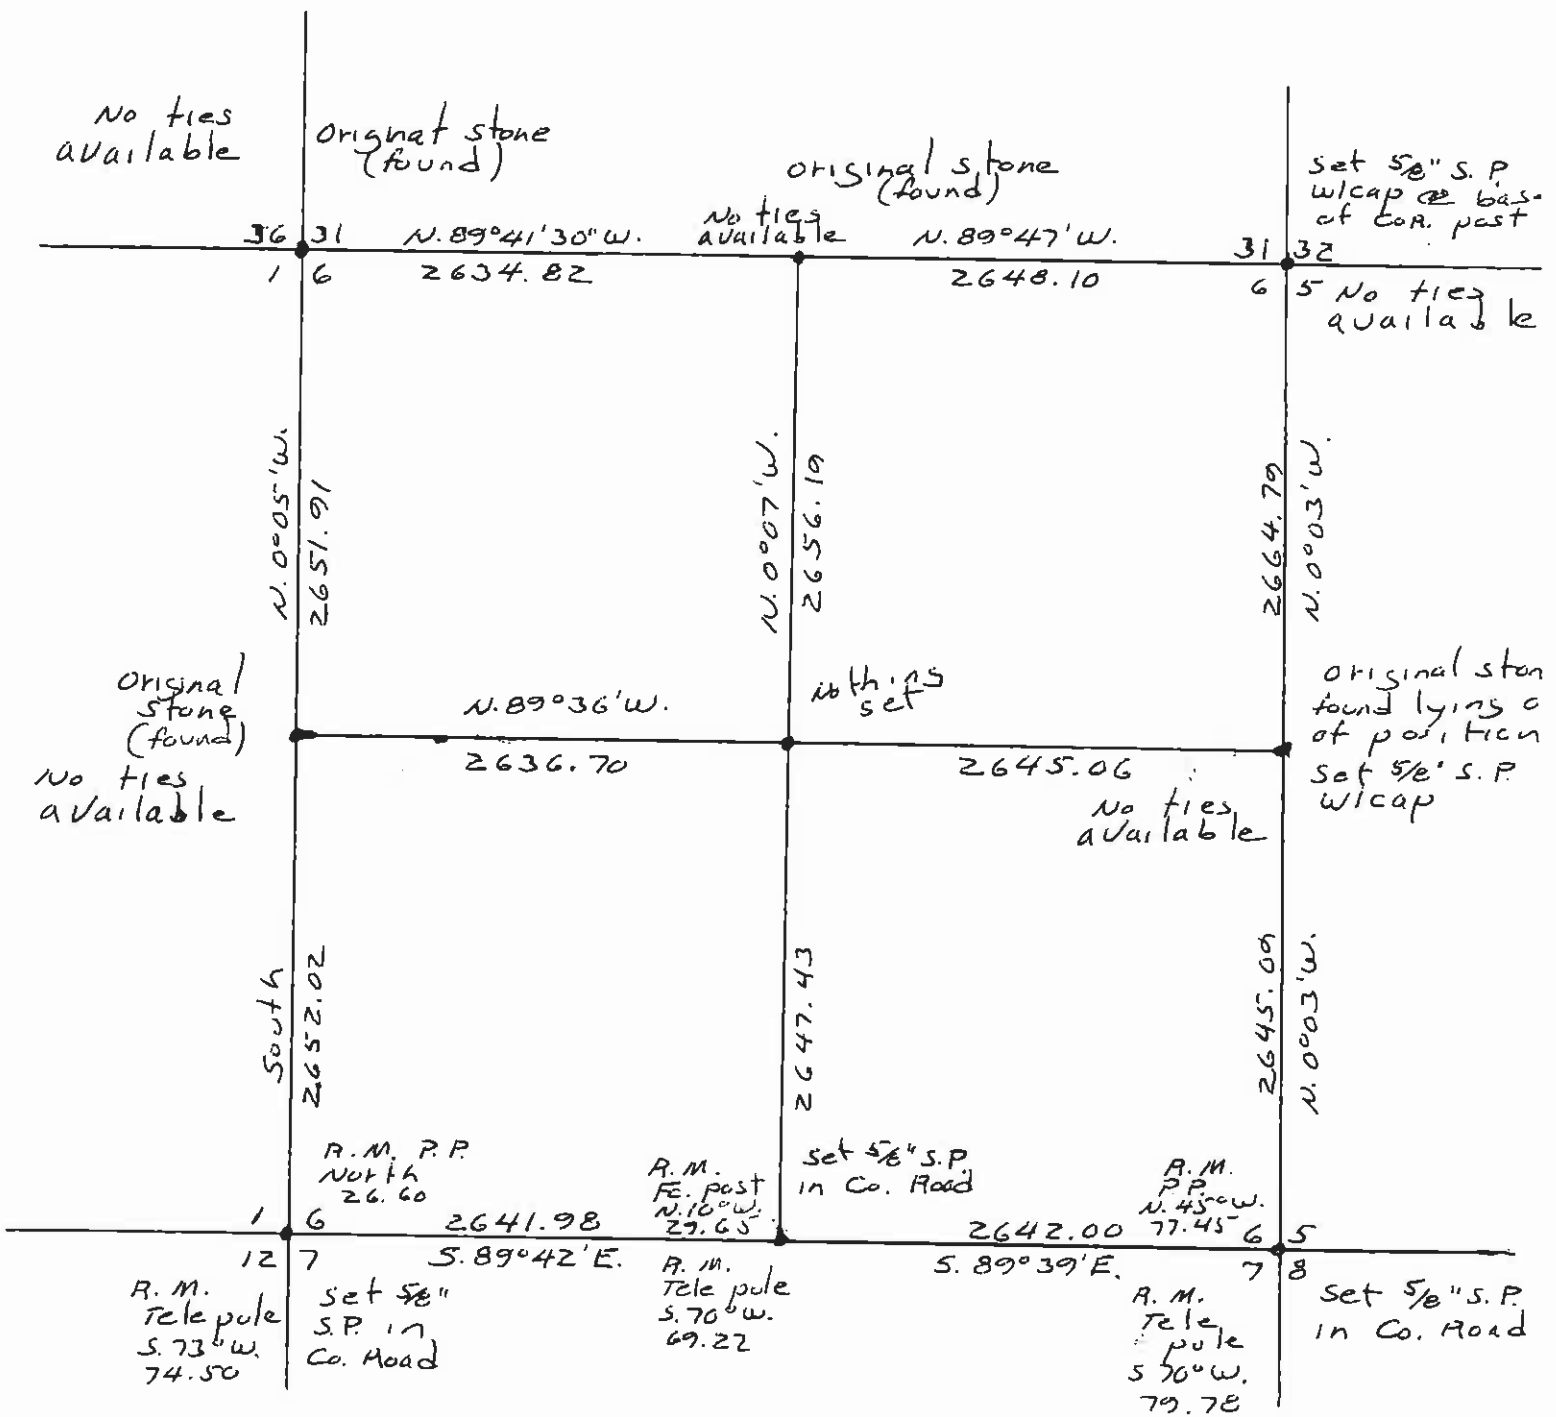 No ties
available
Orignat stone
(found)
original stone
(found)
No ties
available
Set 5/8" S.P.
w/cap @ bas
of COR. post
36 31
1 6
N. 89°41'30" W.
2634.82
N. 89°47' W.
2648.10
31 32
6 5
No ties
available
N. 0°05' W.
2651.91
N. 0°07' W.
2656.19
2664.79
N. 0°03' W.
Original
stone
(found)
No ties
available
N. 89°36' W.
2636.70
nothing
set
2645.06
No ties
available
original ston
found lying o
of position
Set 5/8" S.P.
w/cap
South
2652.02
2647.43
2645.09
N. 0°03' W.
R.M. P.P.
North
26.60
R.M.
FE. post
N. 10° W.
29.65
Set 5/8" S.P.
in Co. Road
R.M.
P.P.
N. 45° W.
77.45
1 6
12 7
2641.98
S. 89°42' E.
2642.00
S. 89°39' E.
6 5
7 8
R.M.
Tele pole
S. 73° W.
74.50
Set 5/8"
S.P. in
Co. Road
R.M.
Tele pole
S. 70° W.
69.22
R.M.
Tele
pole
S 70° W.
79.78
Set 5/8" S.P.
in Co. Road